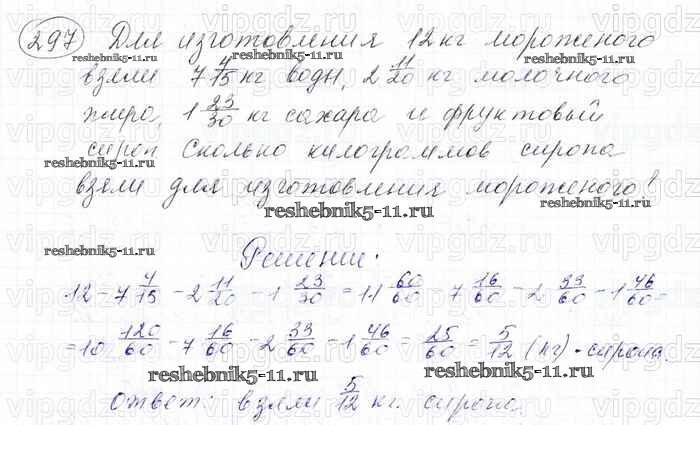 297 Для изготовления 12 кг мороженого
взяли 7 4/15 кг воды, 2 11/20 кг молочного
жира, 1 23/30 кг сахара и фруктовый
сироп. Сколько килограммов сиропа
взяли для изготовления мороженого?
Решение:
12 - 7 4/15 - 2 11/20 - 1 23/30 = 11 60/60 - 7 16/60 - 2 33/60 - 1 46/60 =
= 10 120/60 - 7 16/60 - 2 33/60 - 1 46/60 = 25/60 = 5/12 (кг) - сиропа.
Ответ: взяли 5/12 кг. сиропа.
reshebnik5-11.ru
vipgdz.ru